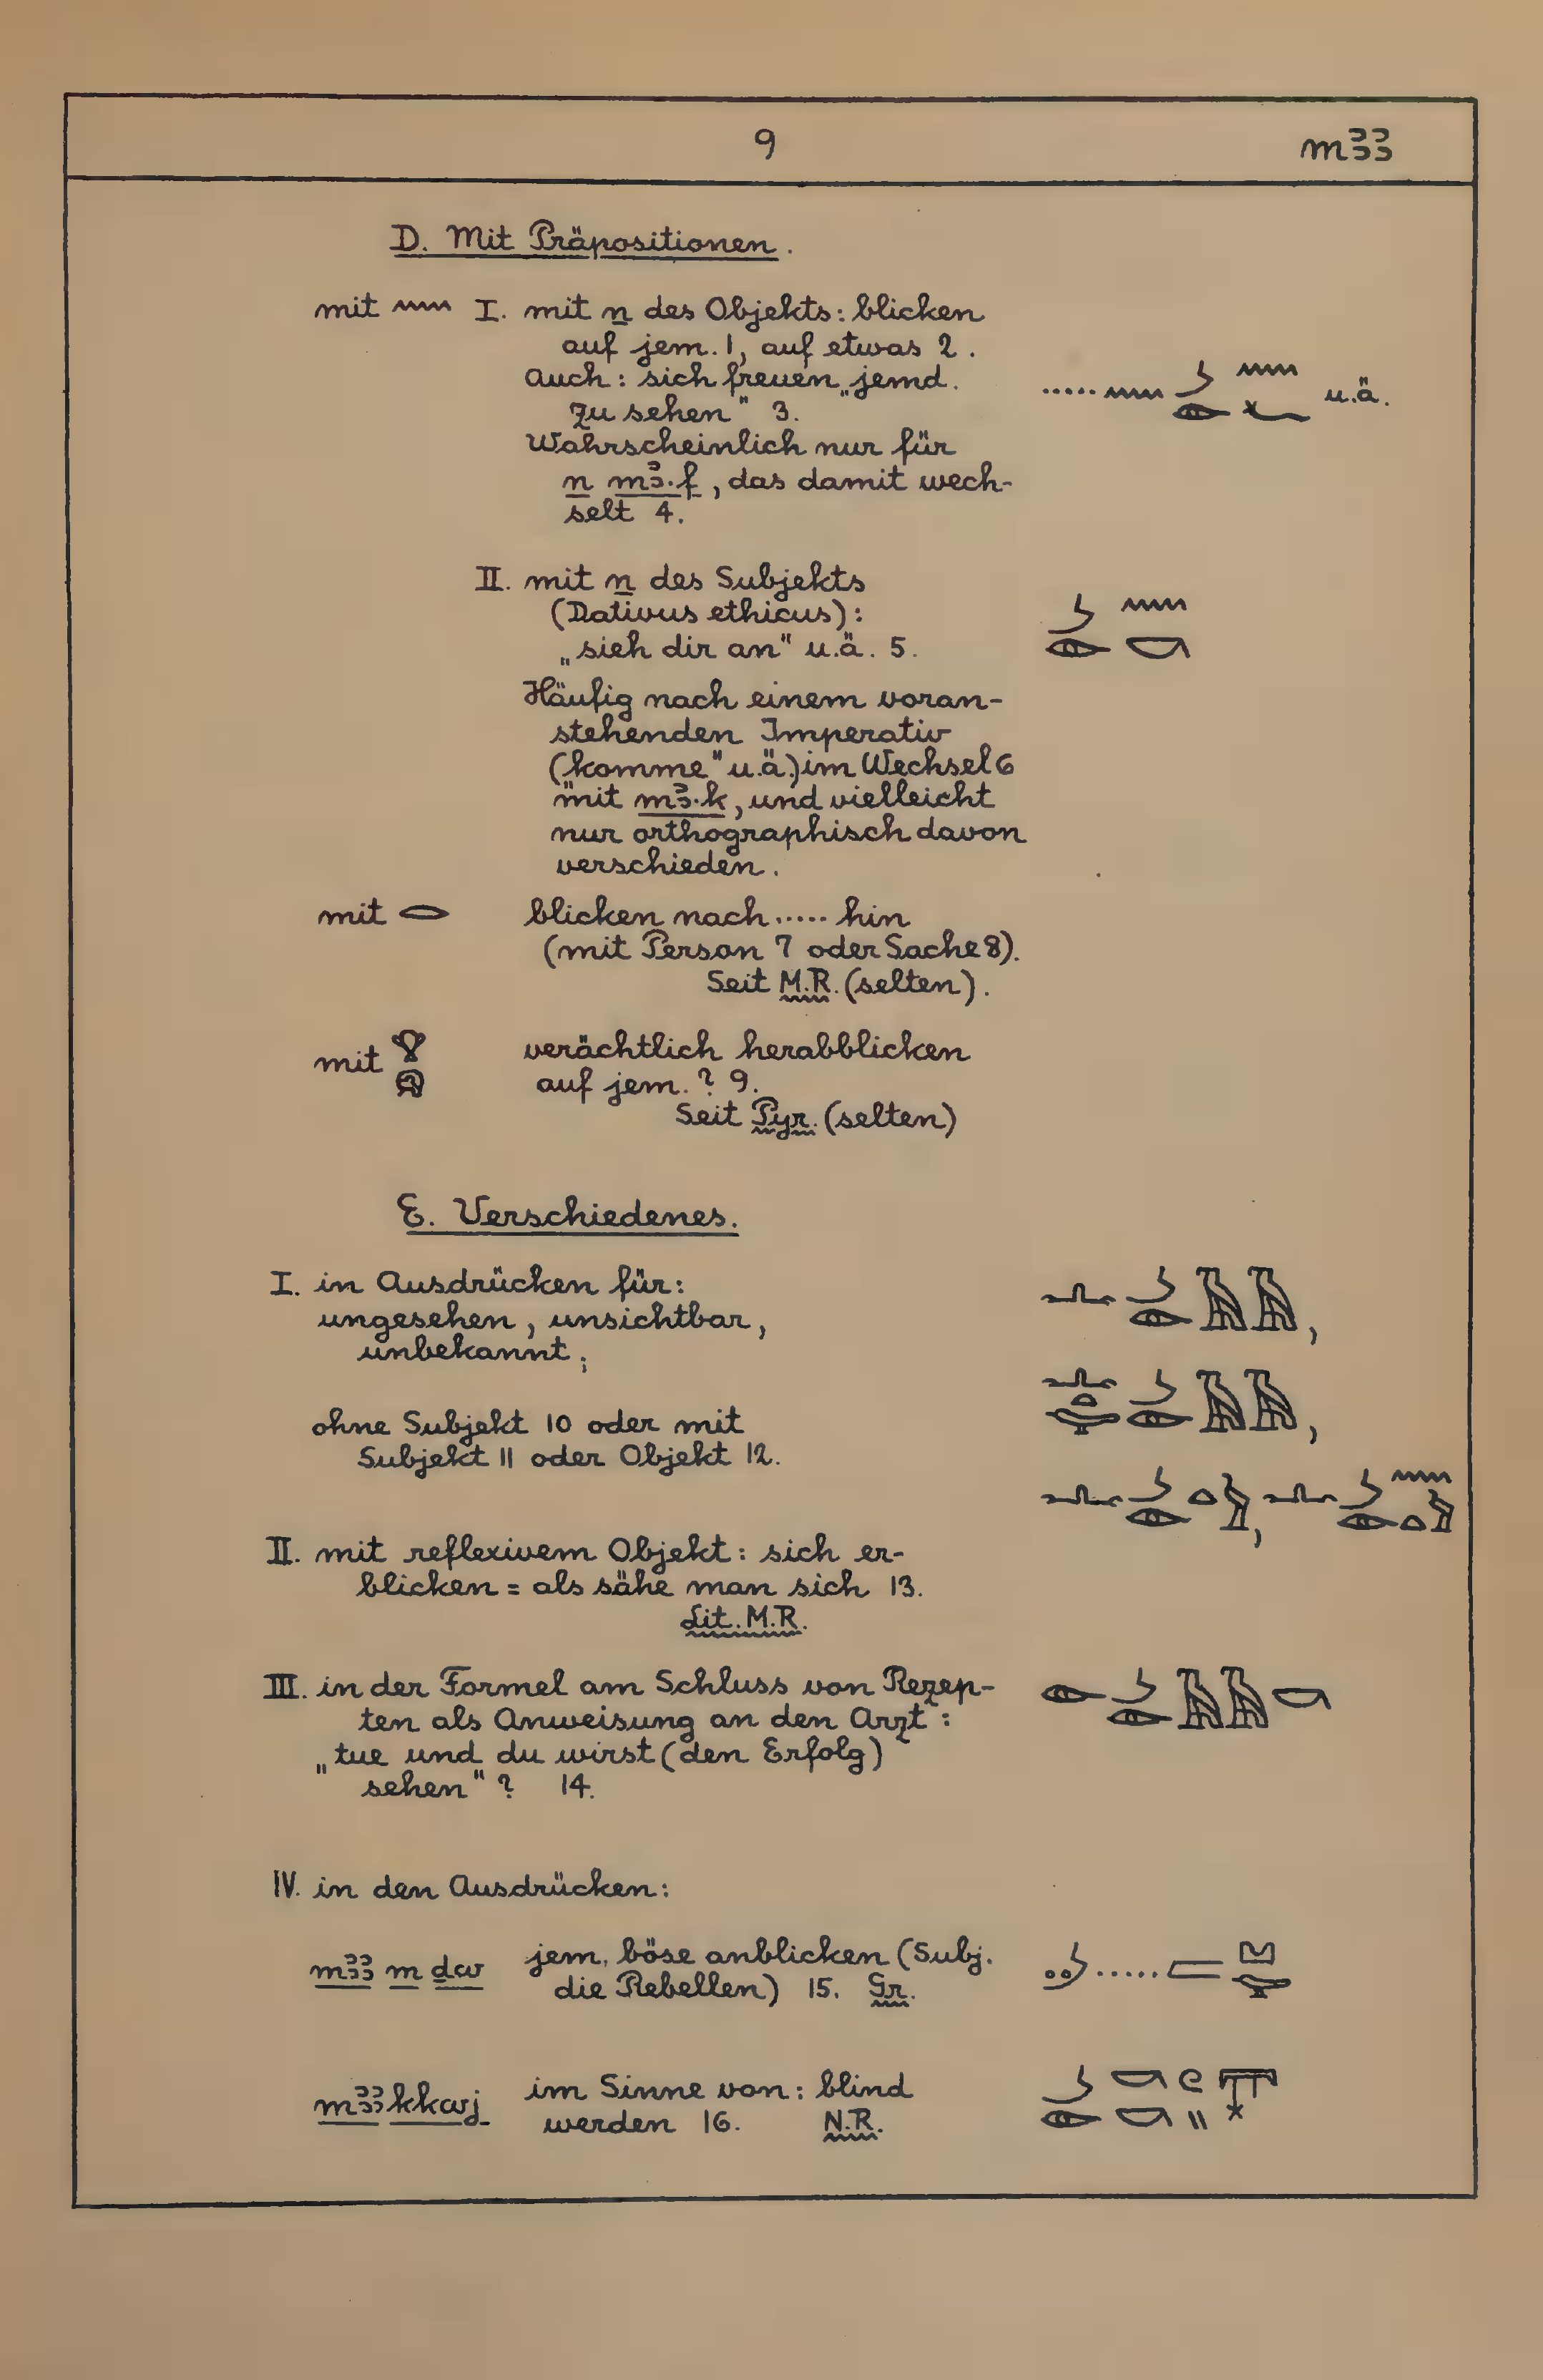 9 mꜣꜣ
D. Mit Präpositionen.
mit 𓈖 I. mit n des Objekts: blicken
auf jem. 1, auf etwas 2.
Auch: sich freuen „jemd.
zu sehen" 3.
..... 𓈖 𓌳 𓁹 𓈖 𓆑 u.ä.
Wahrscheinlich nur für
n mꜣ·f, das damit wech-
selt 4.
II. mit n des Subjekts
(Dativus ethicus):
„sieh dir an" u.ä. 5.
𓌳 𓁹 𓈖 𓎡
Häufig nach einem voran-
stehenden Imperativ
(„komme" u.ä.) im Wechsel 6
mit mꜣ·k, und vielleicht
nur orthographisch davon
verschieden.
mit 𓂋 blicken nach ..... hin
(mit Person 7 oder Sache 8).
Seit M.R. (selten).
mit 𓄂 𓁶 verächtlich herabblicken
auf jem. ? 9.
Seit Pyr. (selten)
E. Verschiedenes.
I. in Ausdrücken für: 𓂜 𓌳 𓁹 𓄿 𓄿,
ungesehen, unsichtbar,
unbekannt;
𓂜 𓏏 𓅓 𓌳 𓁹 𓄿 𓄿,
ohne Subjekt 10 oder mit
Subjekt 11 oder Objekt 12.
𓂜 𓌳 𓁹 𓏏 𓅱, 𓂜 𓌳 𓁹 𓈖 𓏏 𓅱
II. mit reflexivem Objekt: sich er-
blicken = als sähe man sich 13.
Lit. M.R.
III. in der Formel am Schluss von Rezep- 𓁹 𓌳 𓁹 𓄿 𓄿 𓎡
ten als Anweisung an den Arzt:
„tue und du wirst (den Erfolg)
sehen" ? 14.
IV. in den Ausdrücken:
mꜣꜣ m ḏw jem. böse anblicken (Subj.
die Rebellen) 15. Gr.
mꜣꜣ kkwj im Sinne von: blind
werden 16. N.R.
𓌳 𓁹 𓎡 𓎡 𓏲 𓏭 𓇰